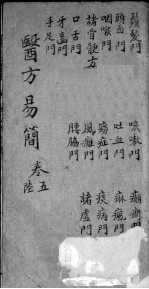 鬚髮門
頭面門
咽喉門
諸骨鯁方
口舌門
牙齒門
手足門
咳嗽門
吐血門
門
風門
腰脇門
癲癇門
麻瘋門
痰病門
諸虛門
醫方易簡
卷五
陸